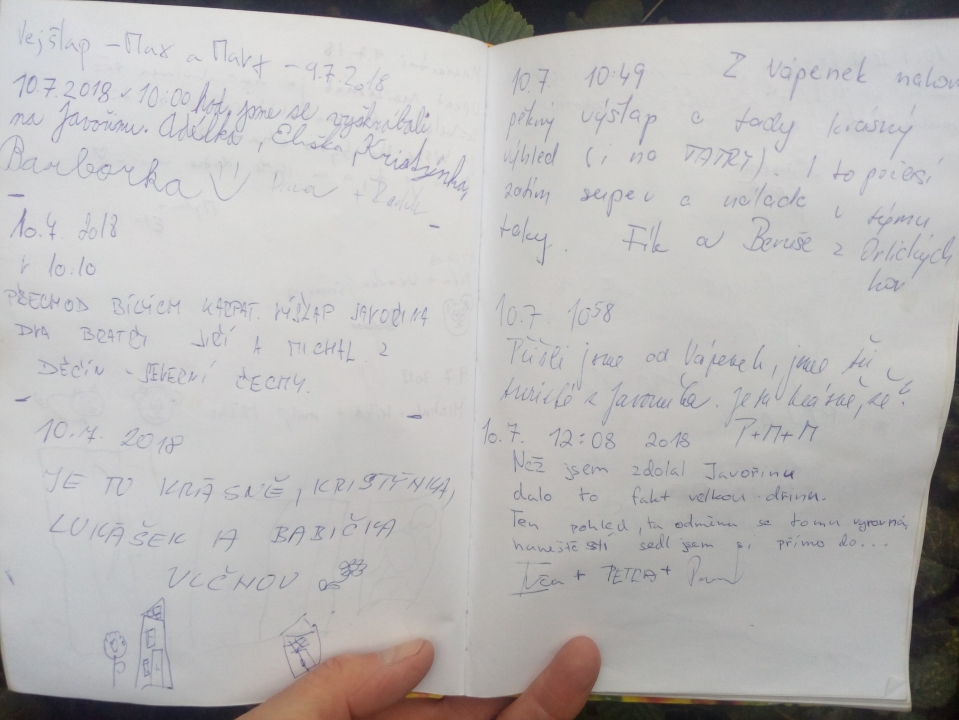 Vejšlap - Max a Marx - 9.7.2018
10.7.2018 v 10:00 hod. jsme se vyškrábali
na Javořinu. Adélka, Eliška, Kristýnka,
Barborka
10.7. 2018
v 10.10
PŘECHOD BÍLÍCH KARPAT. VÍŠLAP JAVOŘINA
DVA BRATŘI JIŘÍ A MICHAL Z
DĚČÍN - SEVERNÍ ČECHY.
10.7. 2018
JE TO KRÁSNĚ, KRISTÝNKA,
LUKÁŠEK A BABIČKA
VLČNOV
10.7. 10:49 Z Vápenek nalov
pěkný výšlap a tady krásný
výhled (i na TATRY). I to počasí
zatím super a nálada v týmu
taky. Fík a Beruše z Orlických
hor
10.7. 10 58
Přišli jsme od Vápenek, jsme tu
turisté z Javorníka. Je tu krásně, že?
P+M+M
10.7. 12:08 2018
Než jsem zdolal Javořinu
dalo to fakt velkou dřinu.
Ten pohled, ta odměna se tomu vyrovná,
naneštěstí sedl jsem si přímo do...
+ PETRA +